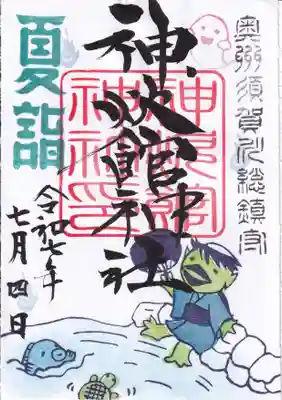 奥州須賀川総鎮守
神炊館神社
夏詣
令和七年
七月四日
神炊館神社印